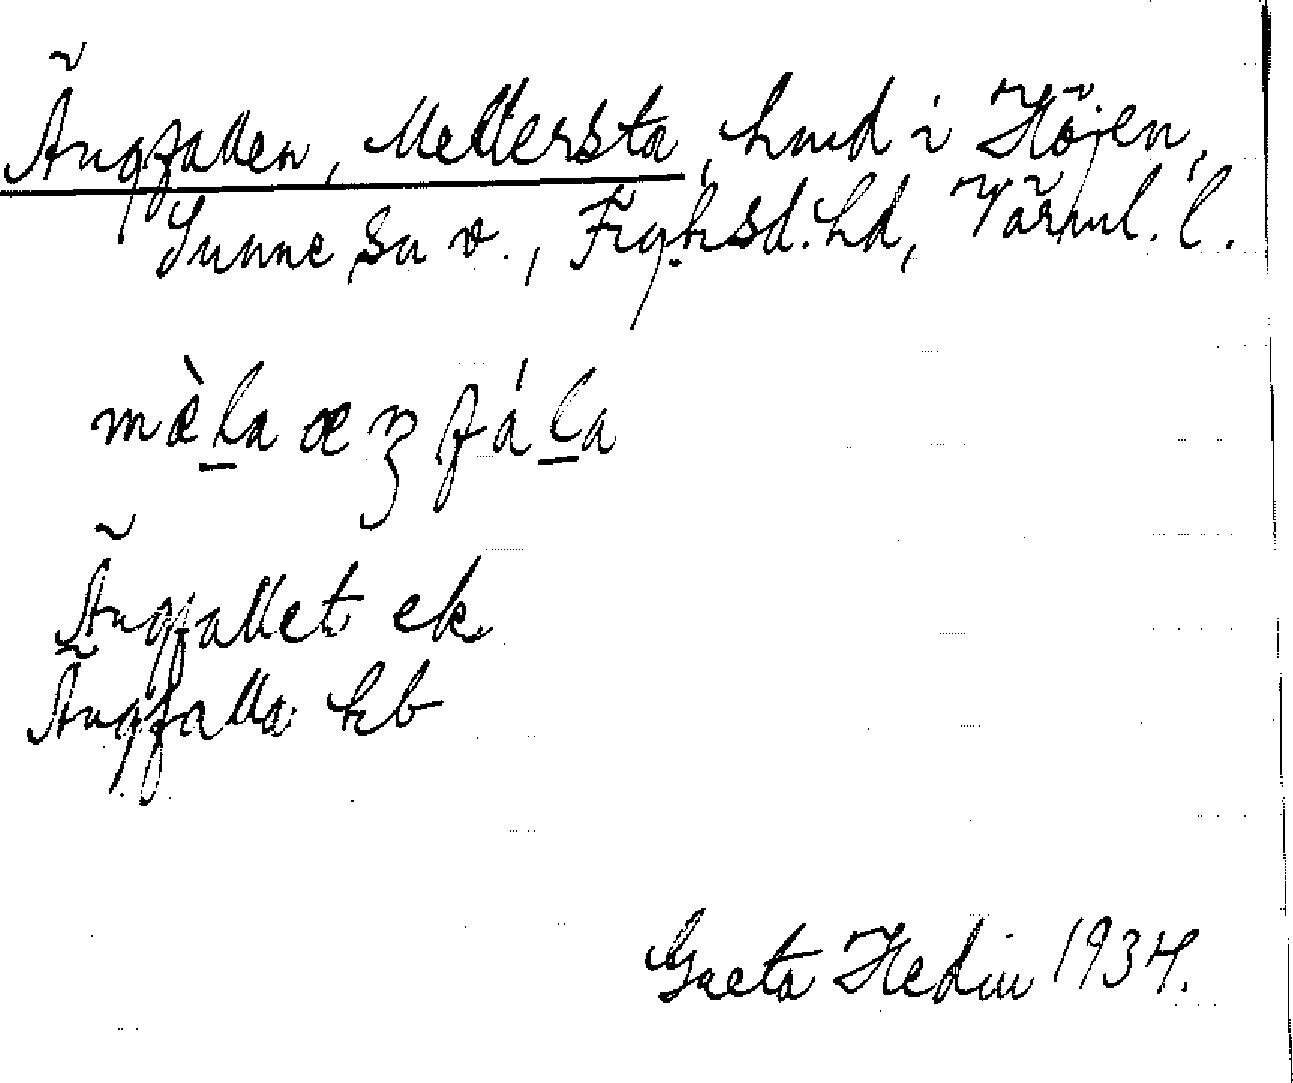 Ängfallen, Mellersta, hmd i Höjen,
Sunne sn v., Fryksd. hd, Värml. l.
mæ̀l̲a æŋfál̲a
Ängfallet ek
Ängfalla kb
Greta Hedin 1934.